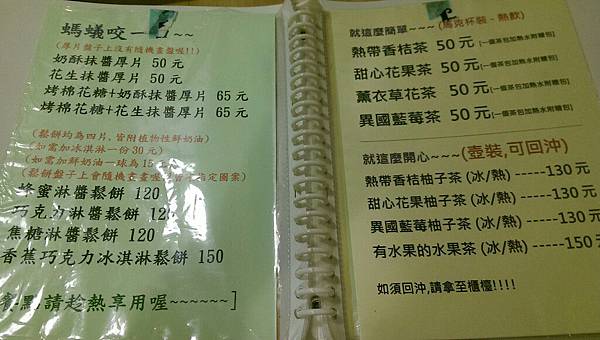 螞蟻咬一口~~
(厚片盤子上沒有隨機畫盤喔!!)
奶酥抹醬厚片 50元
花生抹醬厚片 50元
烤棉花糖+奶酥抹醬厚片 65元
烤棉花糖+花生抹醬厚片 65元
(鬆餅均為四片,皆附植物性鮮奶油)
(如需加冰淇淋一份30元)
(如需加鮮奶油一球為15元)
(鬆餅盤子上會隨機畫盤喔 指定圖案)
蜂蜜淋醬鬆餅 120
巧克力淋醬鬆餅 120
焦糖淋醬鬆餅 120
香蕉巧克力冰淇淋鬆餅 150
餐點請趁熱享用喔~~~~~~]
就這麼簡單~~~(馬克杯裝-熱飲)
熱帶香桔茶 50元[一個茶包加熱水附糖包]
甜心花果茶 50元[一個茶包加熱水附糖包]
薰衣草花茶 50元[一個茶包加熱水附糖包]
異國藍莓茶 50元[一個茶包加熱水附糖包]
就這麼開心~~~~(壺裝,可回沖)
熱帶香桔柚子茶(冰/熱)-----130元
甜心花果柚子茶(冰/熱)-----130元
異國藍莓柚子茶(冰/熱)-----130元
有水果的水果茶(冰/熱)-----150元
如須回沖,請拿至櫃檯!!!!